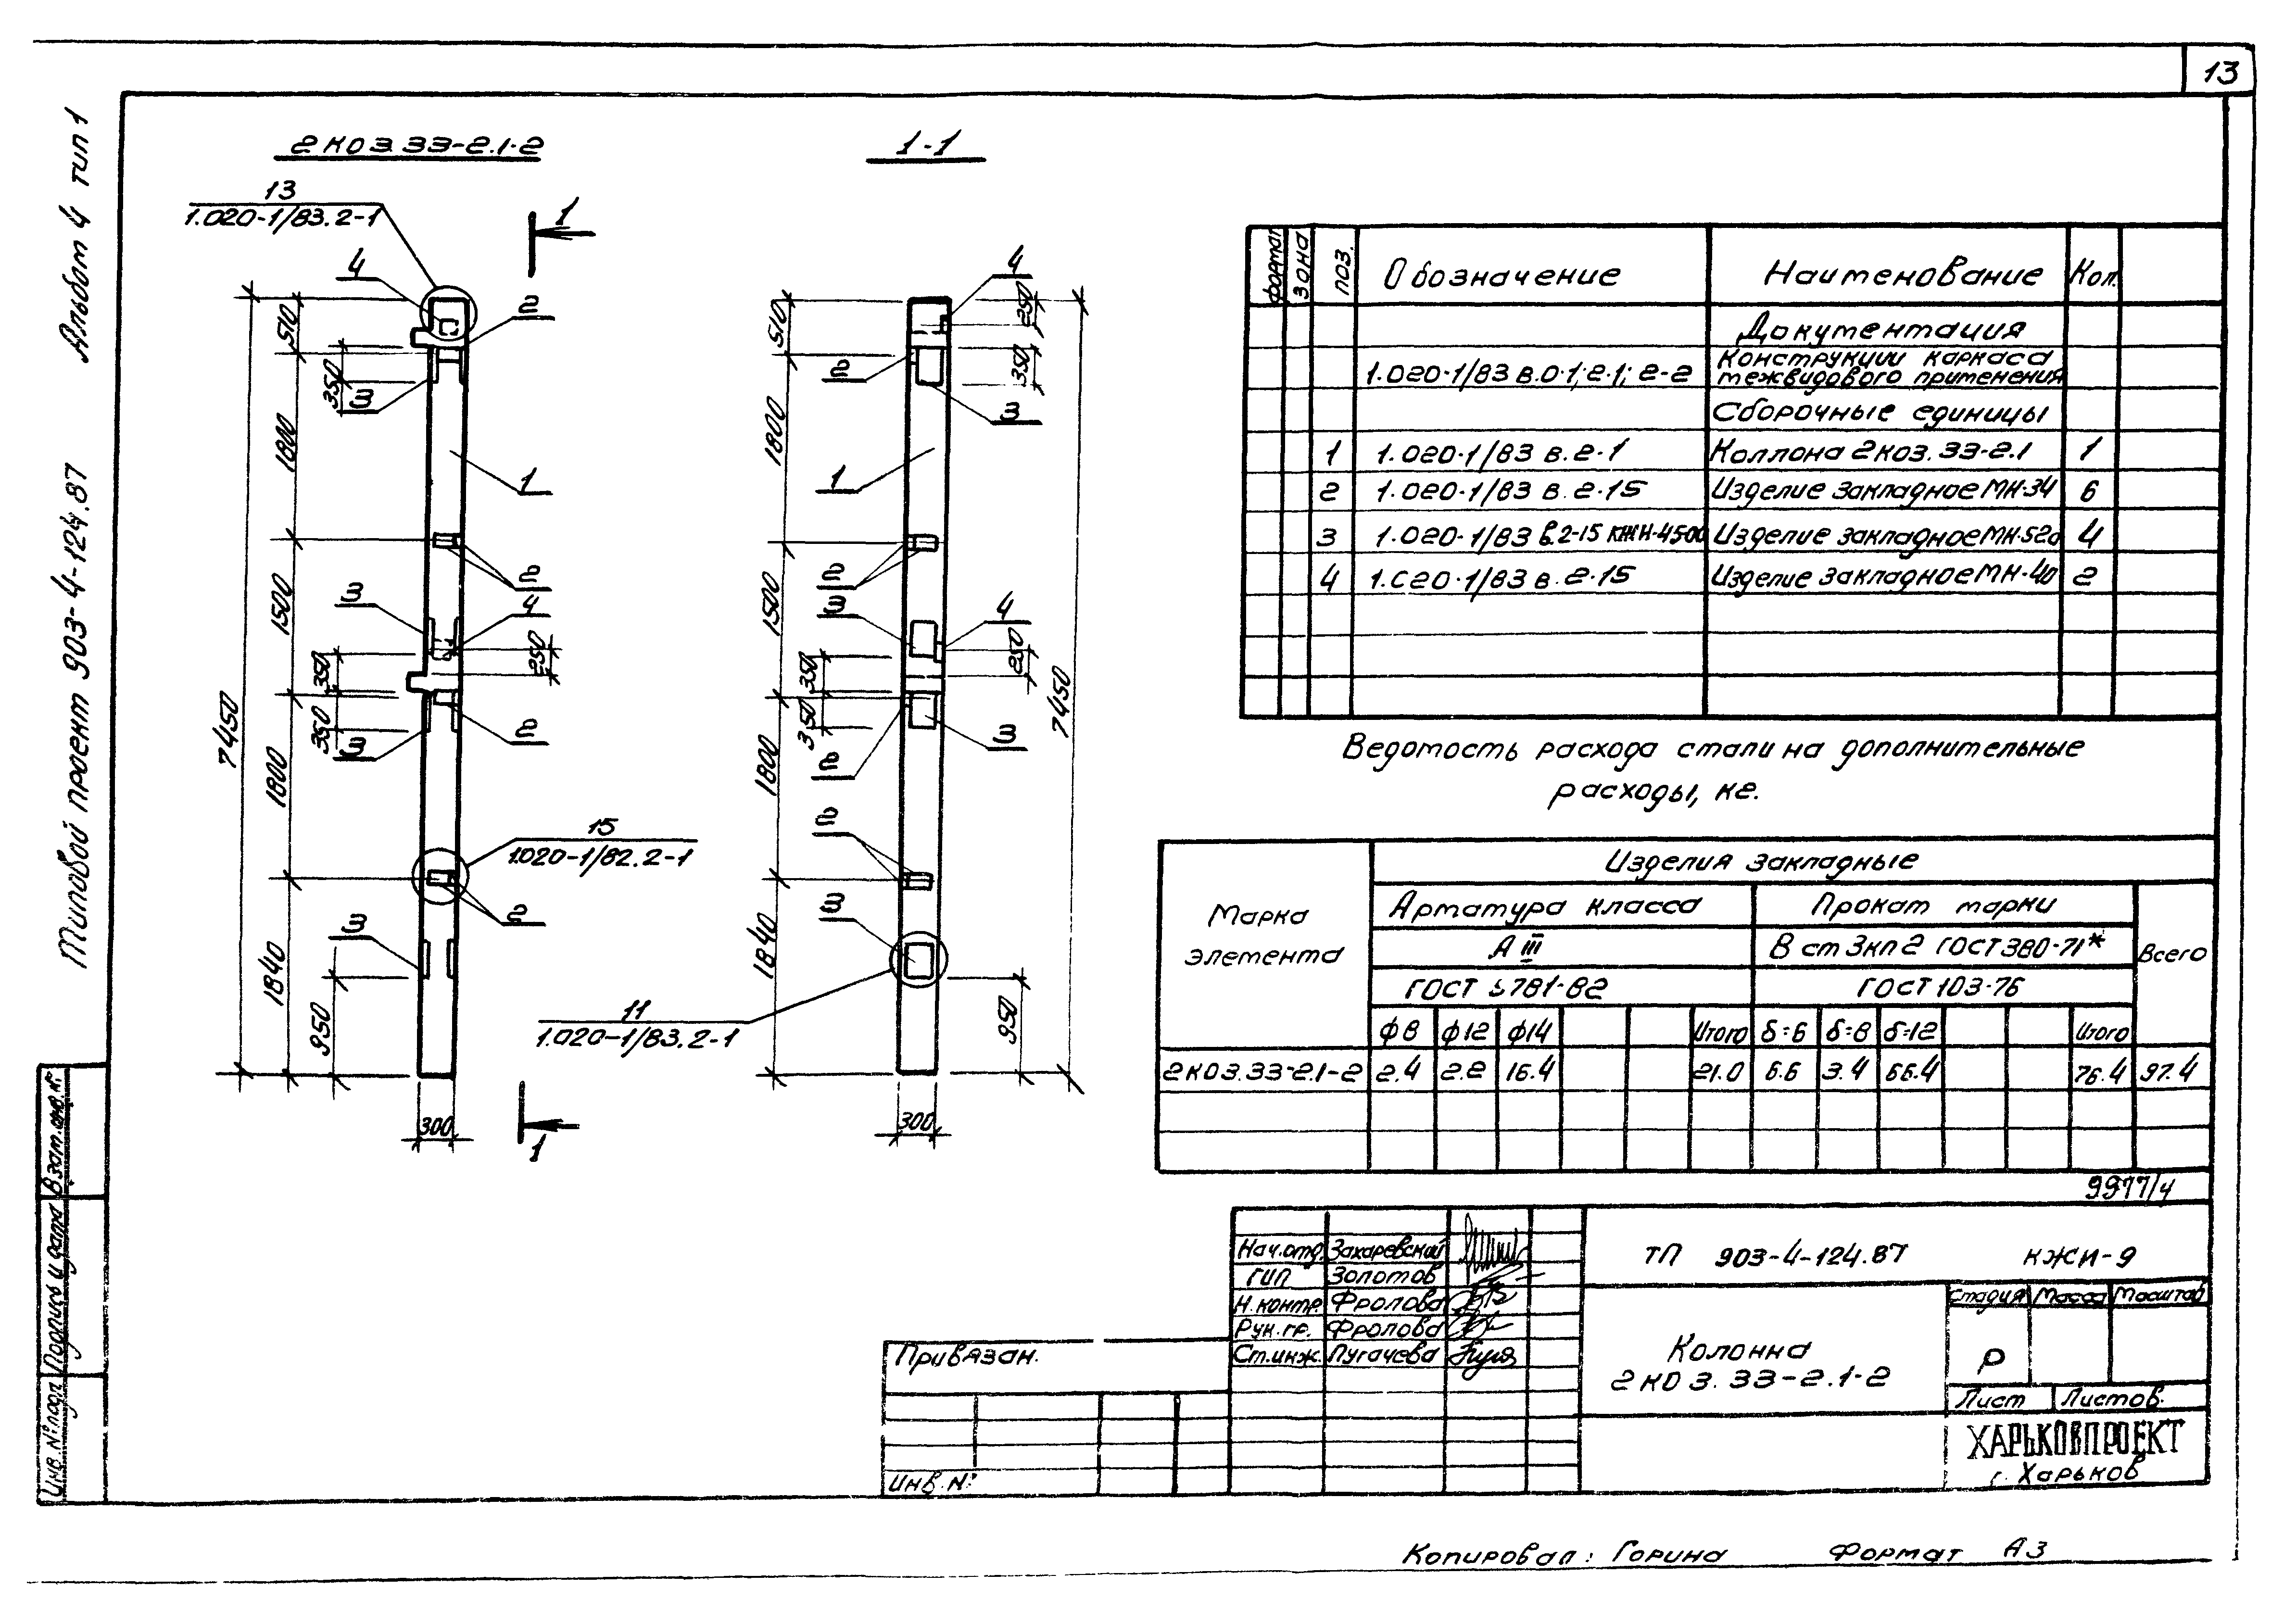 13
Альбом 4 тип 1
Типовой проект 903-4-124.87
2КО3.33-2.1-2
1-1
13
1.020-1/83.2-1
1
4
2
510
350
3
1800
1
2
1500
3
4
350
250
7450
350
3
2
1800
15
1.020-1/82.2-1
2
3
1840
950
11
1.020-1/83.2-1
300
1
4
250
510
350
2
3
1800
1
2
1500
3
4
350
250
7450
350
3
2
1800
2
3
1840
950
300
формат
зона
поз.
Обозначение
Наименование
Кол.
Документация
1.020-1/83 в.0-1; 2-1; 2-2
Конструкции каркаса
межвидового применения
Сборочные единицы
1 1.020-1/83 в. 2-1 Коллона 2КО3.33-2.1 1
2 1.020-1/83 в. 2-15 Изделие закладное МН-34 6
3 1.020-1/83 в.2-15 КЖИ-4500 Изделие закладное МН-52а 4
4 1.020-1/83 в. 2-15 Изделие закладное МН-40 2
Ведомость расхода стали на дополнительные
расходы, кг.
Марка
элемента
Изделия закладные
Арматура класса
Прокат марки
А III
В ст 3кп 2 ГОСТ 380-71*
Всего
ГОСТ 5781-82
ГОСТ 103-76
ф8 ф12 ф14 Итого δ=6 δ=8 δ=12 Итого
2КО3.33-2.1-2 2.4 2.2 16.4 21.0 6.6 3.4 66.4 76.4 97.4
9977/4
Нач.отд. Захаревский
ГИП Золотов
Н.контр. Фролова
Рук.гр. Фролова
Ст.инж. Пугачева
ТП 903-4-124.87 КЖИ-9
Колонна
2КО3.33-2.1-2
Стадия Масса Масштаб
Р
Лист Листов.
ХАРЬКОВПРОЕКТ
г. Харьков
Привязан.
Инв.№
Взам.инв.№
Подпись и дата
Инв.№подл
Копировал: Горина Формат А3